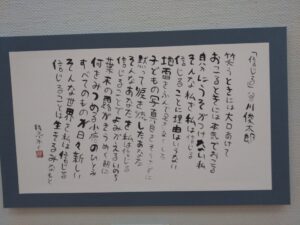 「信じる」 谷川俊太郎
笑うときには大口あけて
おこるときには本気でおこる
自分にうそがつけない私
そんな私を私は信じる
信じることに理由はいらない
地雷をふんで足をなくした
子どもの写真目をそらさずに
黙って涙を流したあなた
そんなあなたを私は信じる
信じることでよみがえるいのち
葉末の露がきらめく朝に
何をみつめる小鹿のひとみ
すべてのものが日々新しい
そんな世界を私は信じる
信じることは生きるみなもと